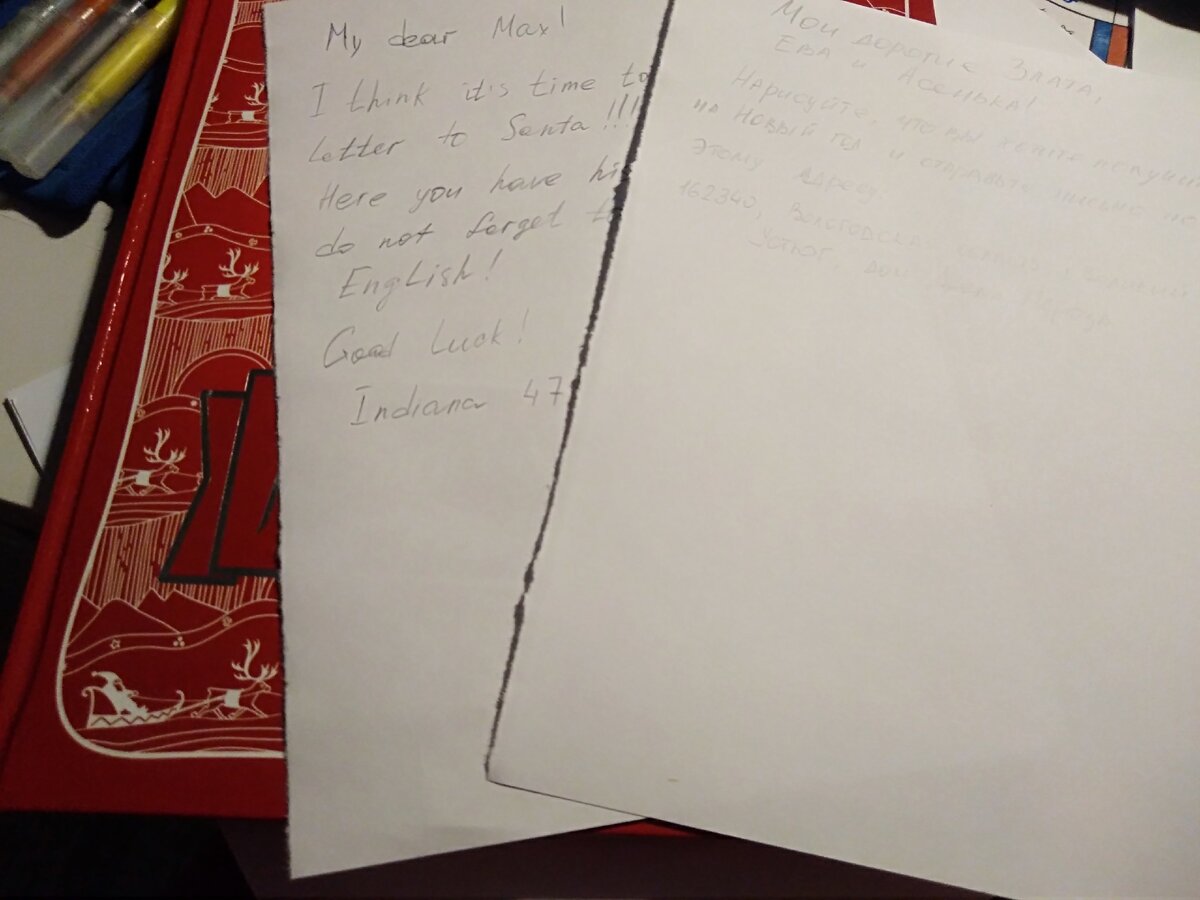 My dear Max!
I think it's time to
Letter to Santa!!!
Here you have hi
do not forget t
English!
Good Luck!
Indiana 47
Мои дорогие Злата,
Ева и Асенька!
Нарисуйте, что вы хотите получить
на Новый год и отправьте письмо по
этому адресу:
162340, Вологодская область, Великий
Устюг, дом Мороза